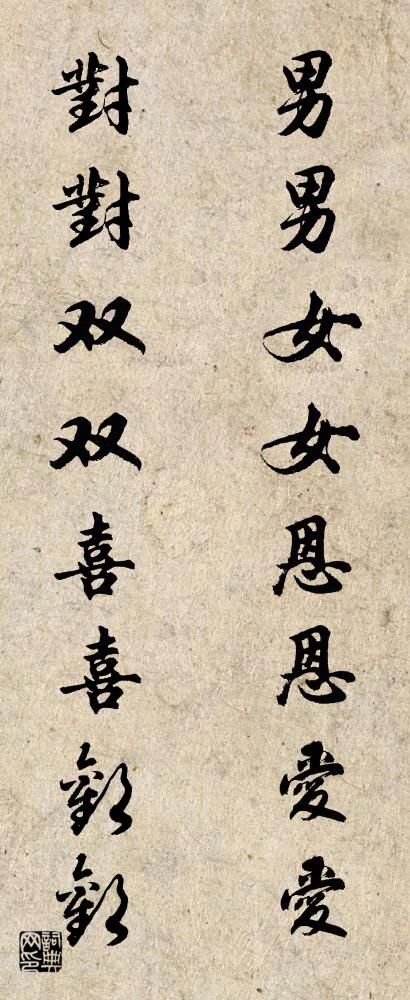 男男女女恩恩愛愛
對對双双喜喜歡歡
詞典网印